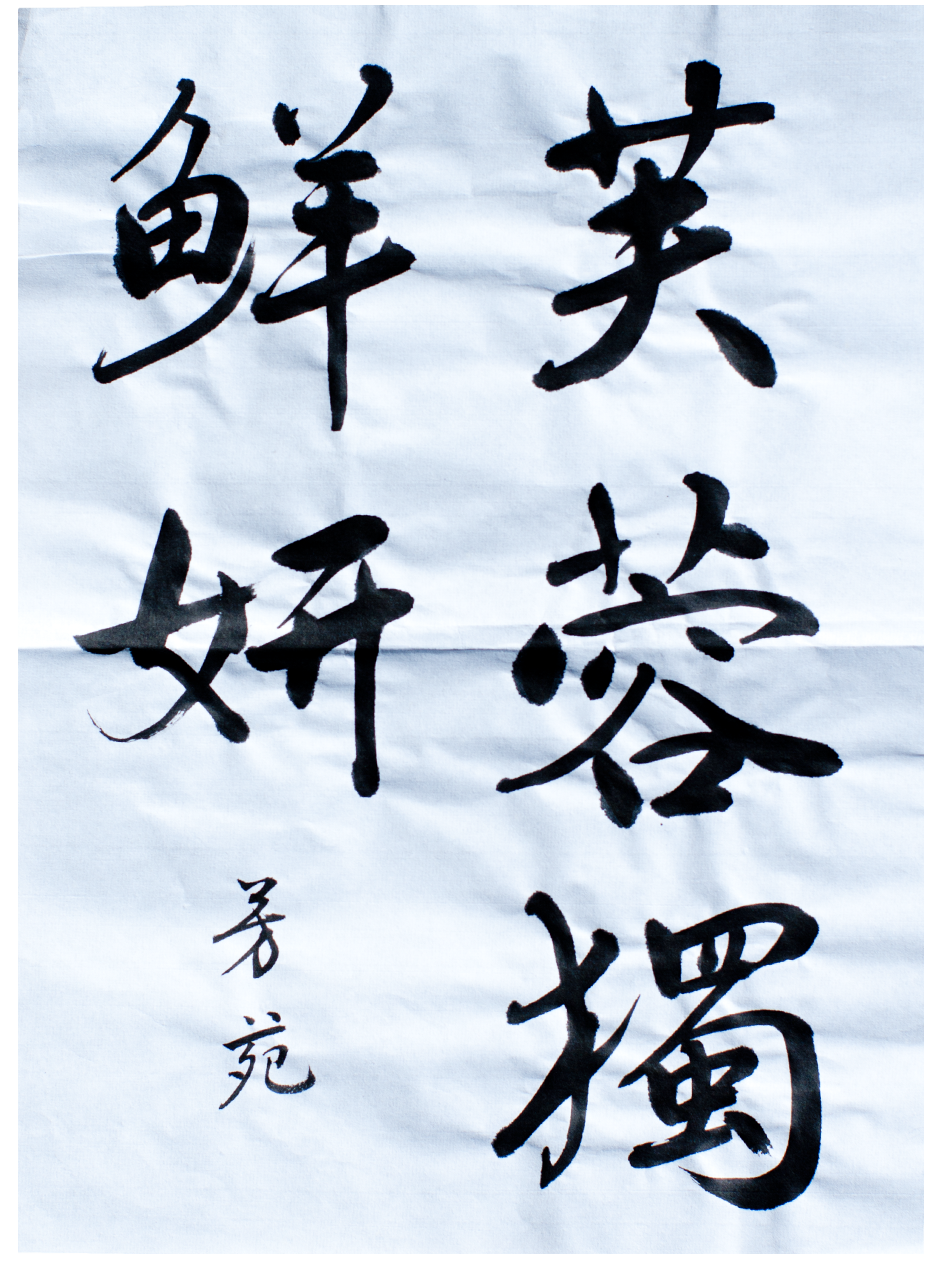 芙蓉獨
鮮妍
芳苑